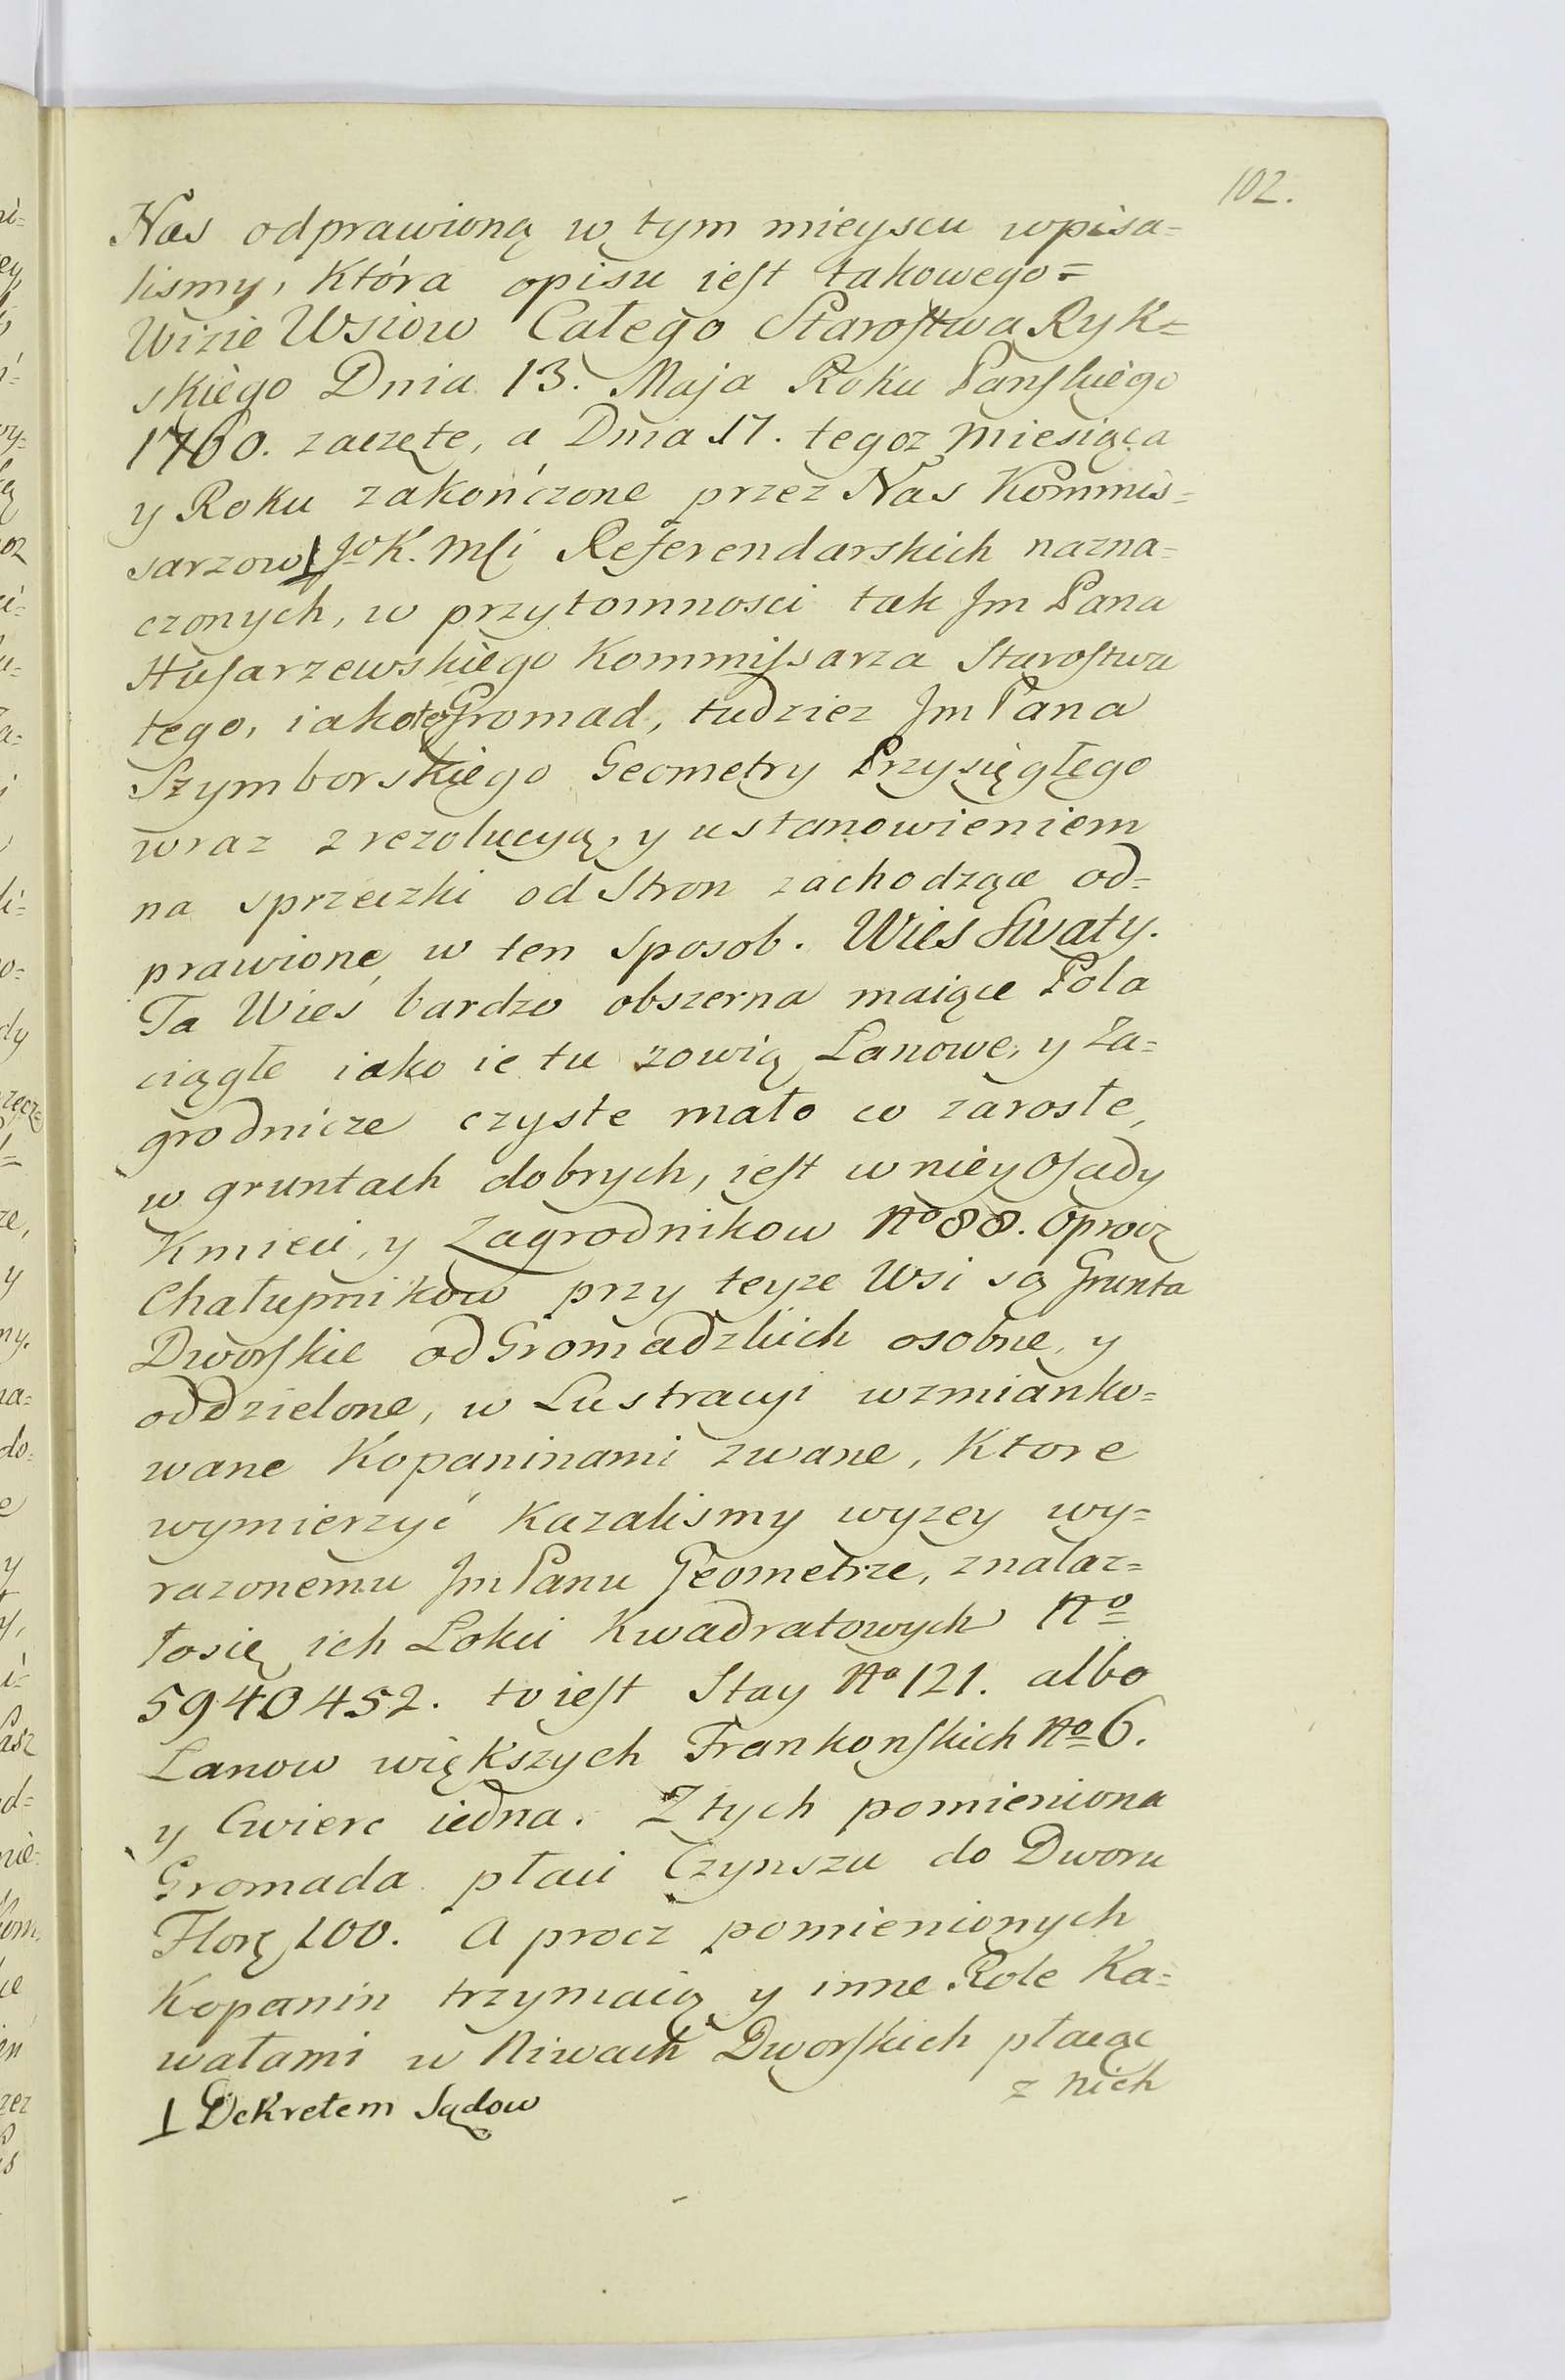 102.
Nas odprawioną w tym mieyscu wpisa=
lismy, Która opisu iest takowego=
Wizie Wsiow Całego Starostwa Ryk=
skiego Dnia 13. Maja Roku Panskiego
1760. zaczęte, a Dnia 17. tegoz Miesiąca
y Roku zakończone przez Nas Kommis=
sarzow ⊥ Jo K. Mci Referendarskich nazna=
czonych, w przytomnosci tak Jm Pana
Husarzewskiego Kommissarza Starostwa
tego, iakoteż Gromad, tudziez Jm Pana
Szymborskiego Geometry Przysięgłego
wraz z rezolucyą, y ustanowieniem
na sprzeczki od Stron zachodzące od=
prawione w ten Sposob. Wies Swaty.
Ta Wies bardzo obszerna maiące Pola
ciągłe iako ie tu zowią Lanowe, y Za=
grodnicze czyste mało co zarosłe,
w gruntach dobrych, iest w niey Osady
Kmieci, y Zagrodnikow No 88. Oprocz
Chałupnikow przy teyze Wsi są Grunta
Dworskie od Gromadzkich osobne, y
oddzielone, w Lustracyi wzmianko=
wane Kopaninami zwane, Ktore
wymierzyć Kazalismy wyzey wy=
razonemu Jm Panu Geometrze, znalaz=
łosię ich Lokci Kwadratowych No
5940452. to iest Stay No 121. albo
Lanow większych Frankonskich No 6.
y Cwierc iedna. Z tych pomieniona
Gromada płaci Czynszu do Dworu
Florę 100. A procz pomienionych
Kopanin trzymaią y inne Role Ka=
wałami w Niwach Dworskich płacąc
z nich
⊥ Dekretem Sądow